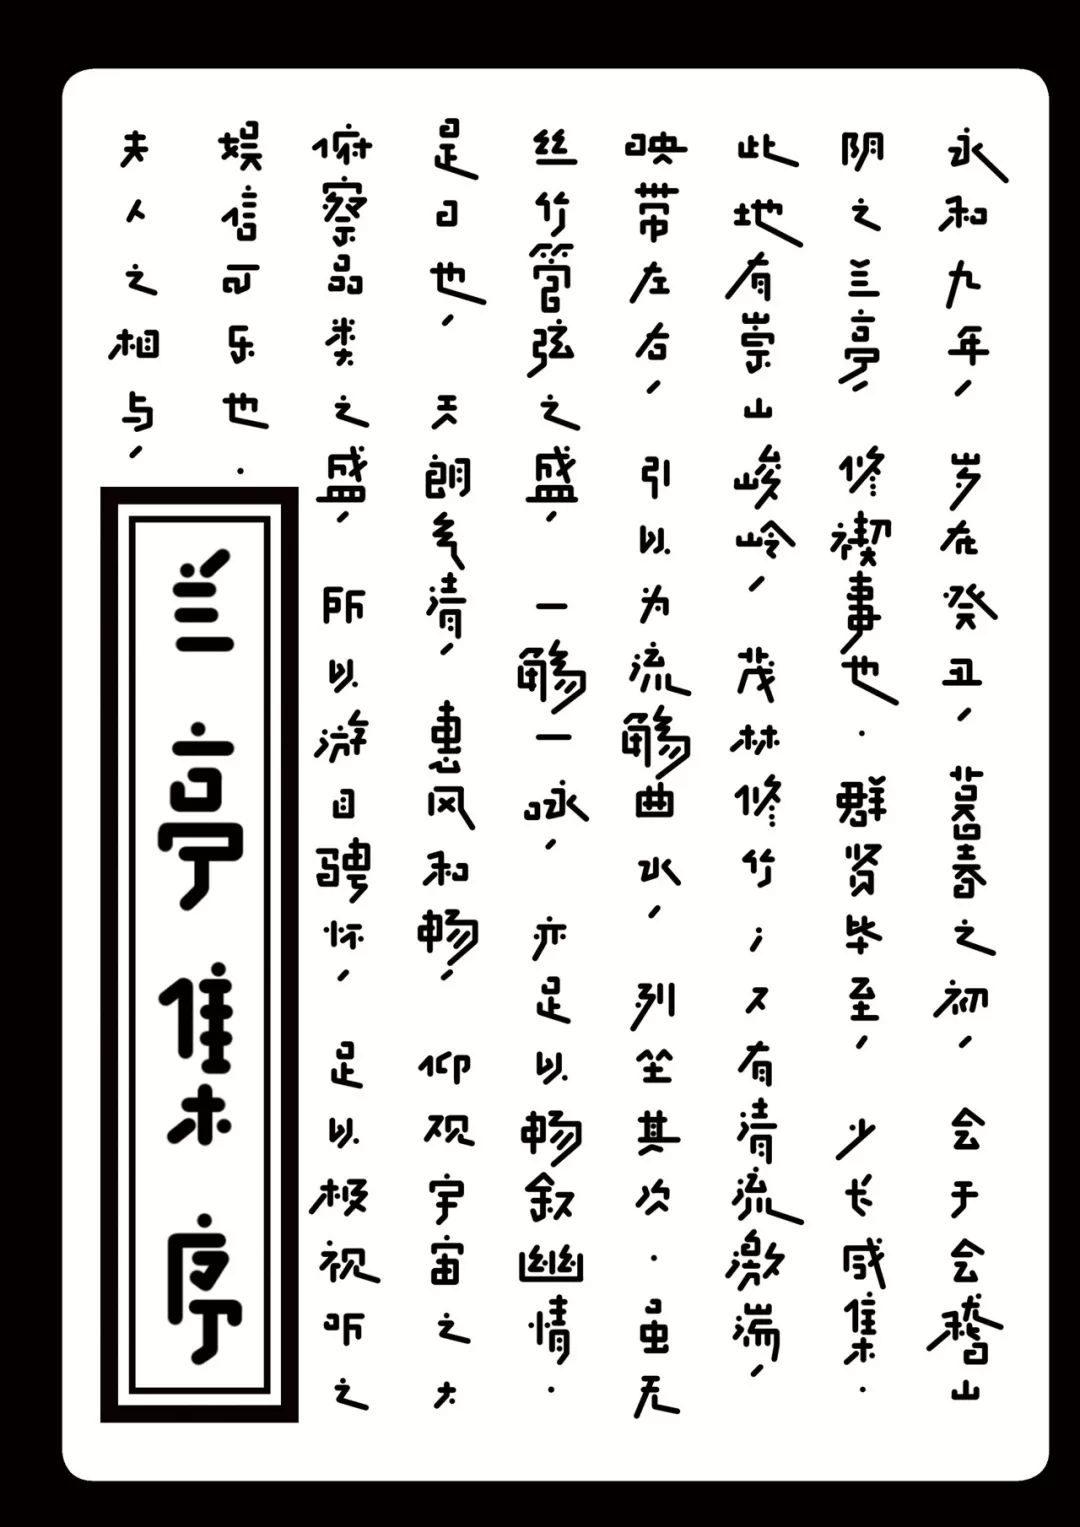 永和九年，岁在癸丑，暮春之初，会于会稽山
阴之兰亭，修禊事也．群贤毕至，少长咸集．
此地有崇山峻岭，茂林修竹；又有清流激湍，
映带左右，引以为流觞曲水，列坐其次．虽无
丝竹管弦之盛，一觞一咏，亦足以畅叙幽情．
是日也，天朗气清，惠风和畅，仰观宇宙之大
俯察品类之盛，所以游目骋怀，足以极视听之
娱信可乐也．
夫人之相与，
兰亭集序